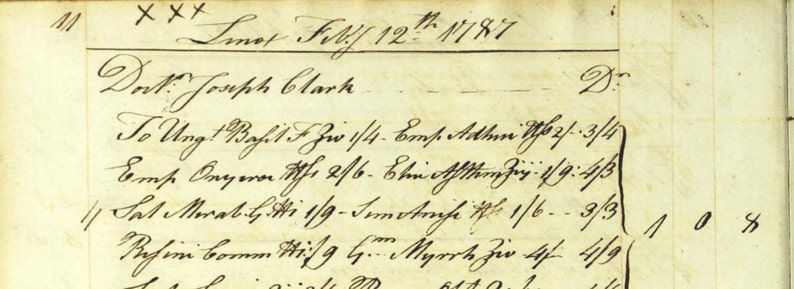 11 XXX
Feby 12th 1787
Doctr Joseph Clark Dr
To Ungt Basil F ℥iv 1/4 - Emp Adhesi ℔ 2/- 3/4
Emp Oxycroc ℔ 2/6 - Elix Asthm ℥ 1/9 4/3
11 Sal Mirab G ℔i 1/9 - Sem Anisi ℔ 1/6 - - 3/3
Resini Comm ℔i /9 Gm Myrrh ℥iv 4/- 4/9
1 0 8